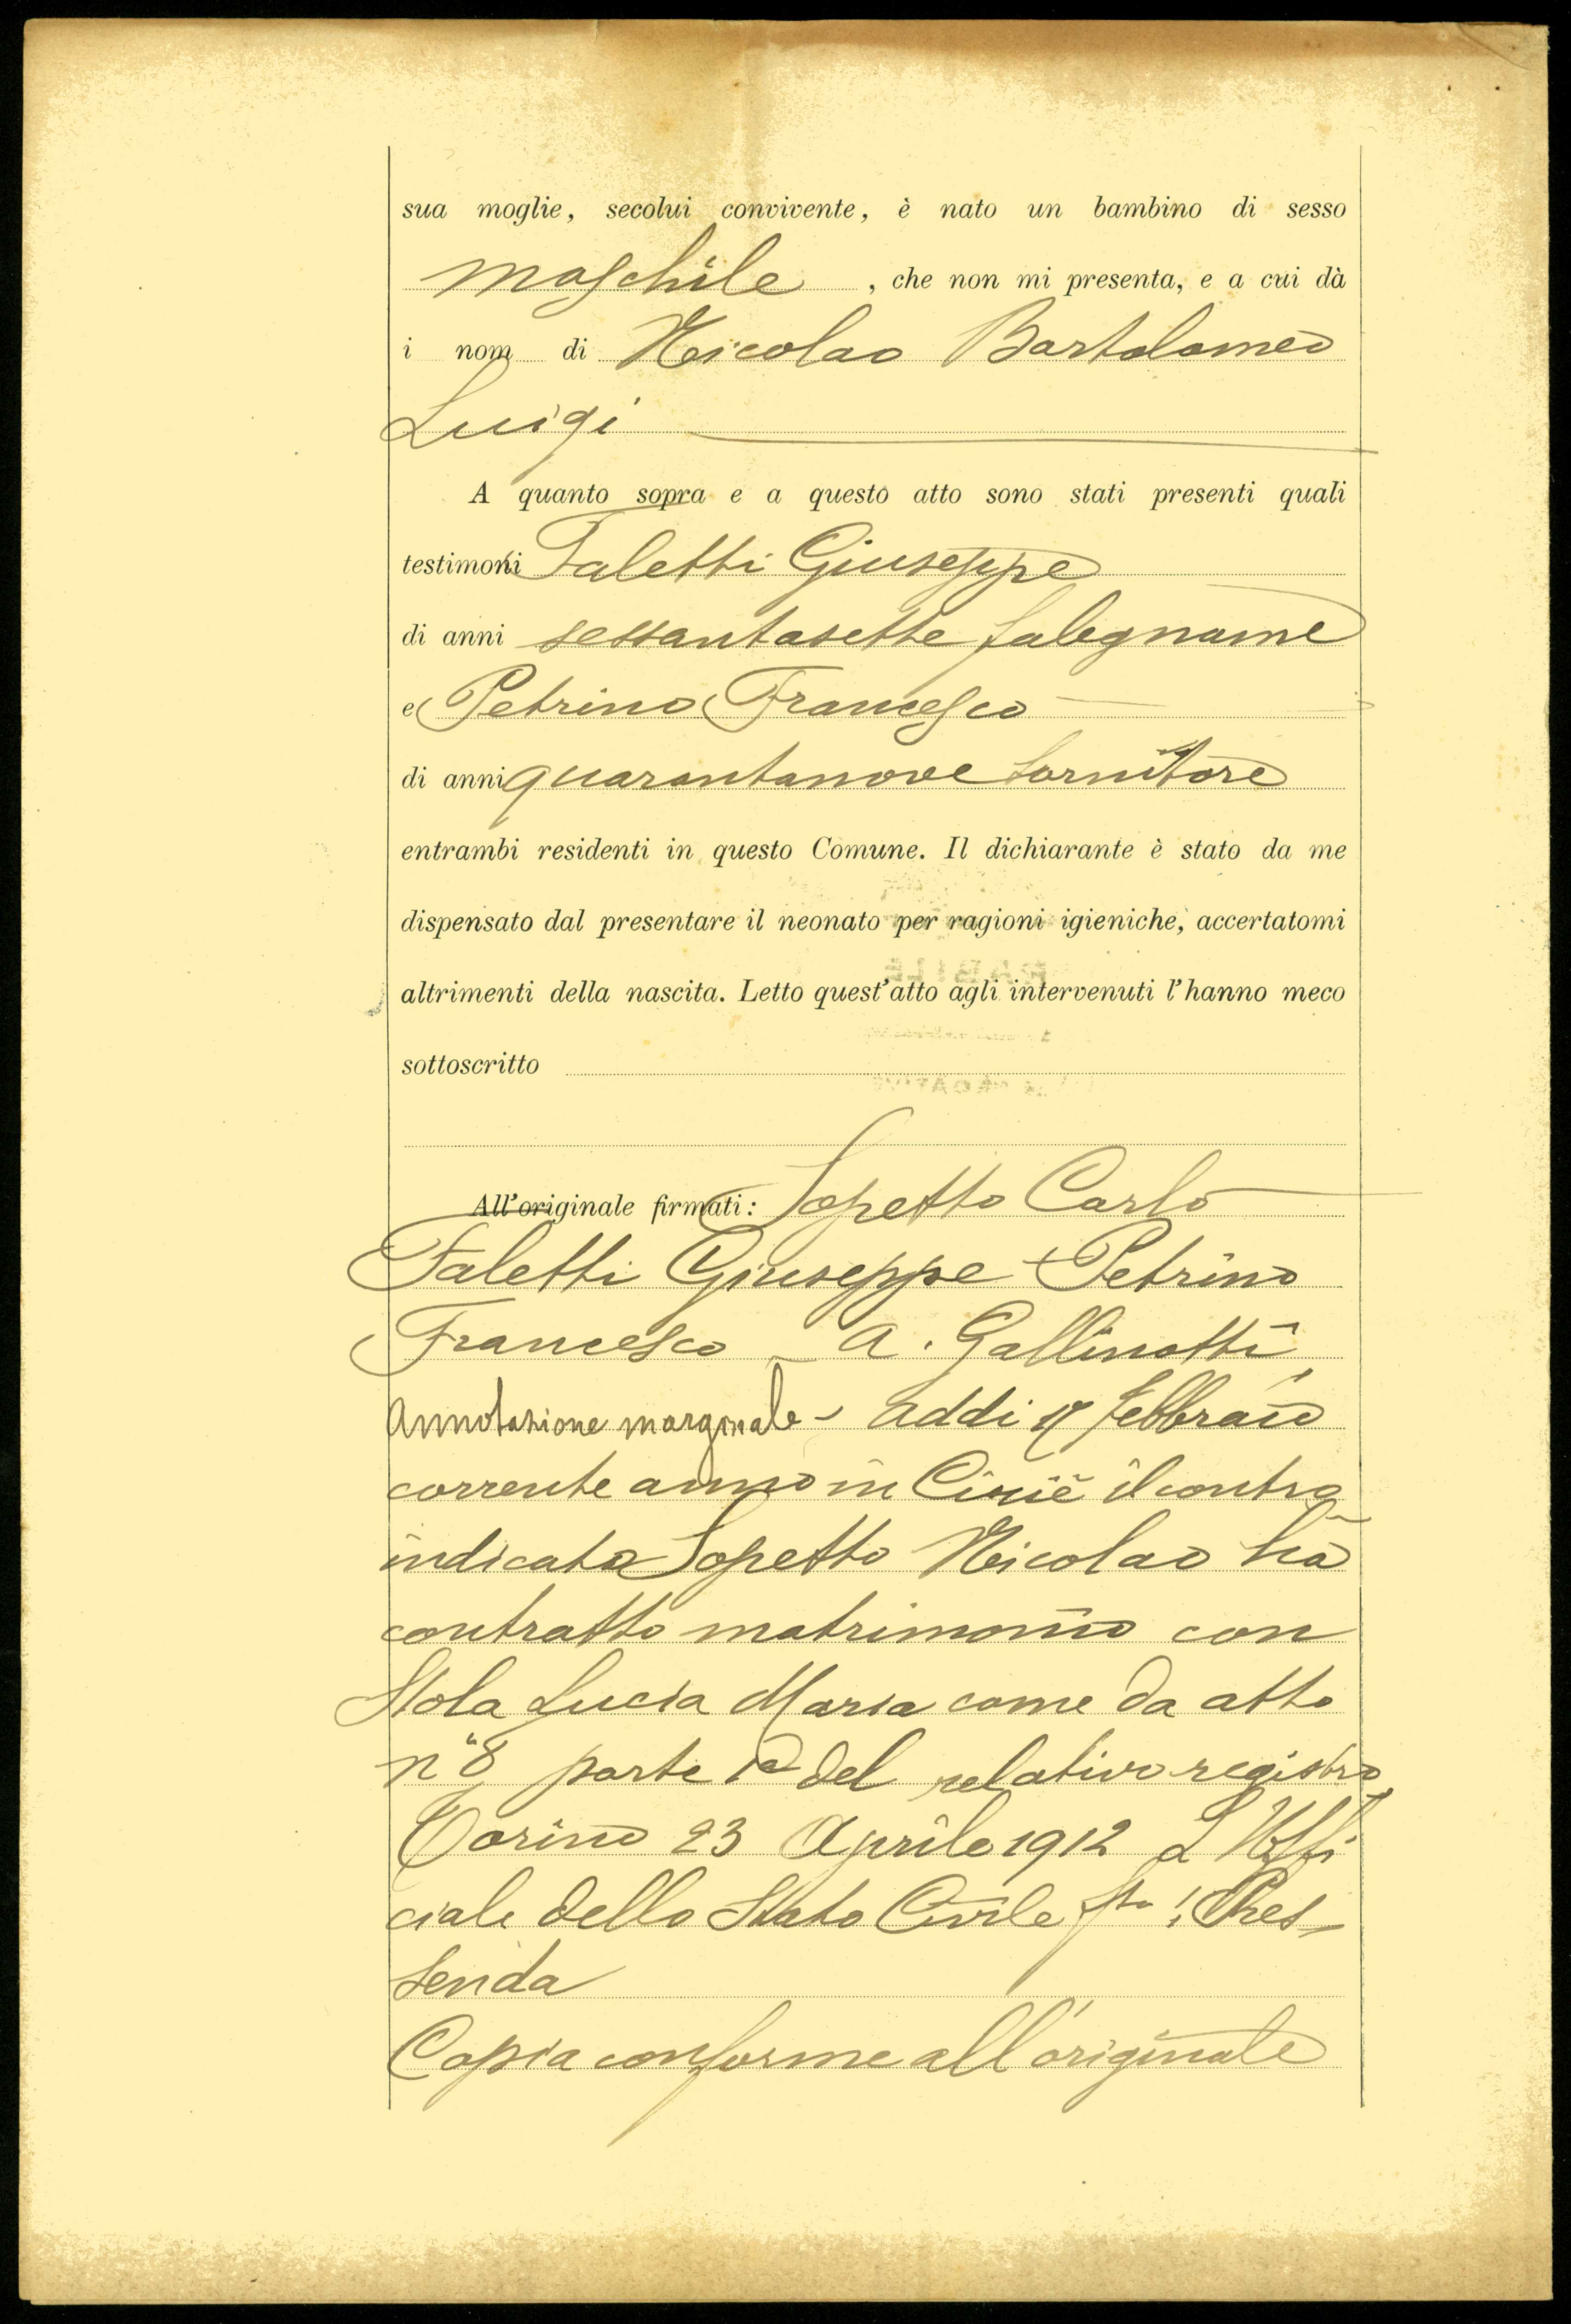 sua moglie, secolui convivente, è nato un bambino di sesso
maschile , che non mi presenta, e a cui dà
i nomi di Nicolao Bartolomeo
Luigi
A quanto sopra e a questo atto sono stati presenti quali
testimoni Faletti Giuseppe
di anni sessantasette falegname
e Petrino Francesco
di anni quarantanove tornitore
entrambi residenti in questo Comune. Il dichiarante è stato da me
dispensato dal presentare il neonato per ragioni igieniche, accertatomi
altrimenti della nascita. Letto quest'atto agli intervenuti l'hanno meco
sottoscritto
All'originale firmati: Sopetto Carlo
Faletti Giuseppe - Petrino
Francesco - A. Gallinotti
Annotazione marginale - Addi 17 febbraio
corrente anno in Ciriè il contro
indicato Sopetto Nicolao ha
contratto matrimonio con
Stola Lucia Maria come da atto
n° 8 parte 1a del relativo registro
Torino 23 Aprile 1912 L'Uffi
ciale dello Stato Civile fto: Pres-
senda
Copia conforme all'originale